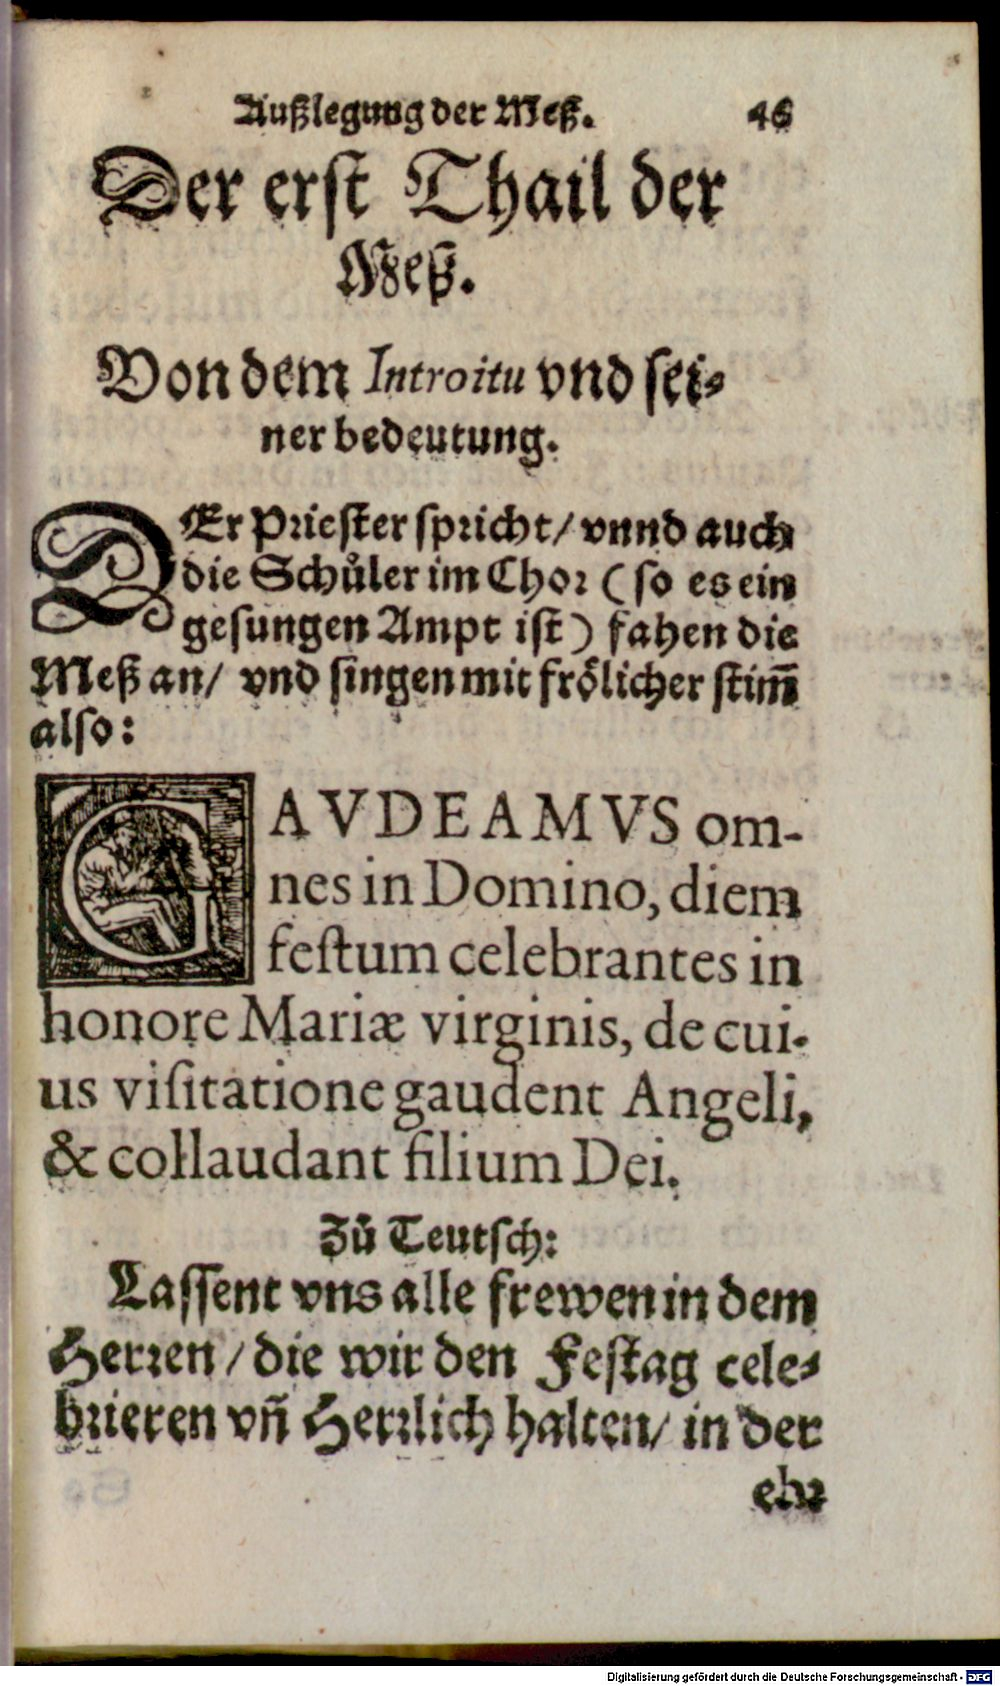 Außlegung der Meß. 46
Der erst Thail der
Meß.
Von dem Introitu vnd sei-
ner bedeutung.
DEr Priester spricht/ vnnd auch
die Schůler im Chor (so es ein
gesungen Ampt ist) fahen die
Meß an/ vnd singen mit frőlicher stim̃
also:
GAVDEAMVS om-
nes in Domino, diem
festum celebrantes in
honore Mariæ virginis, de cui-
us visitatione gaudent Angeli,
& collaudant filium Dei.
Zů Teutsch:
Lassent vns alle frewen in dem
Herren/ die wir den Festag cele-
brieren vñ Herrlich halten/ in der
ehr
Digitalisierung gefördert durch die Deutsche Forschungsgemeinschaft - DFG